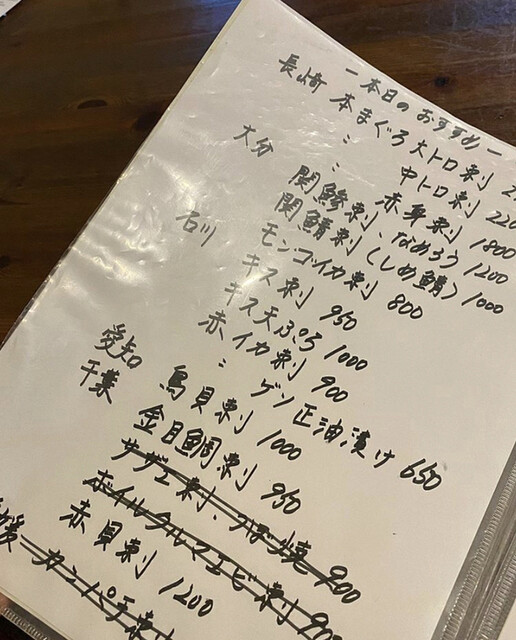 一本日のおすすめ一
長崎 本まぐろ大トロ刺
〃 中トロ刺 220
〃 赤身刺 1800
大分 関鯵刺、なめろう 1200
関鯖刺(しめ鯖) 1000
石川 モンゴイカ刺 800
キス刺 950
キス天ぷら 1000
赤イカ刺 900
〃 ゲソ正油漬け 650
愛知 鳥貝刺 1000
千葉 金目鯛刺 950
サザエ刺、つぼ焼 900
ボイルクルマエビ刺 900
赤貝刺 1200
媛 カンパチ刺